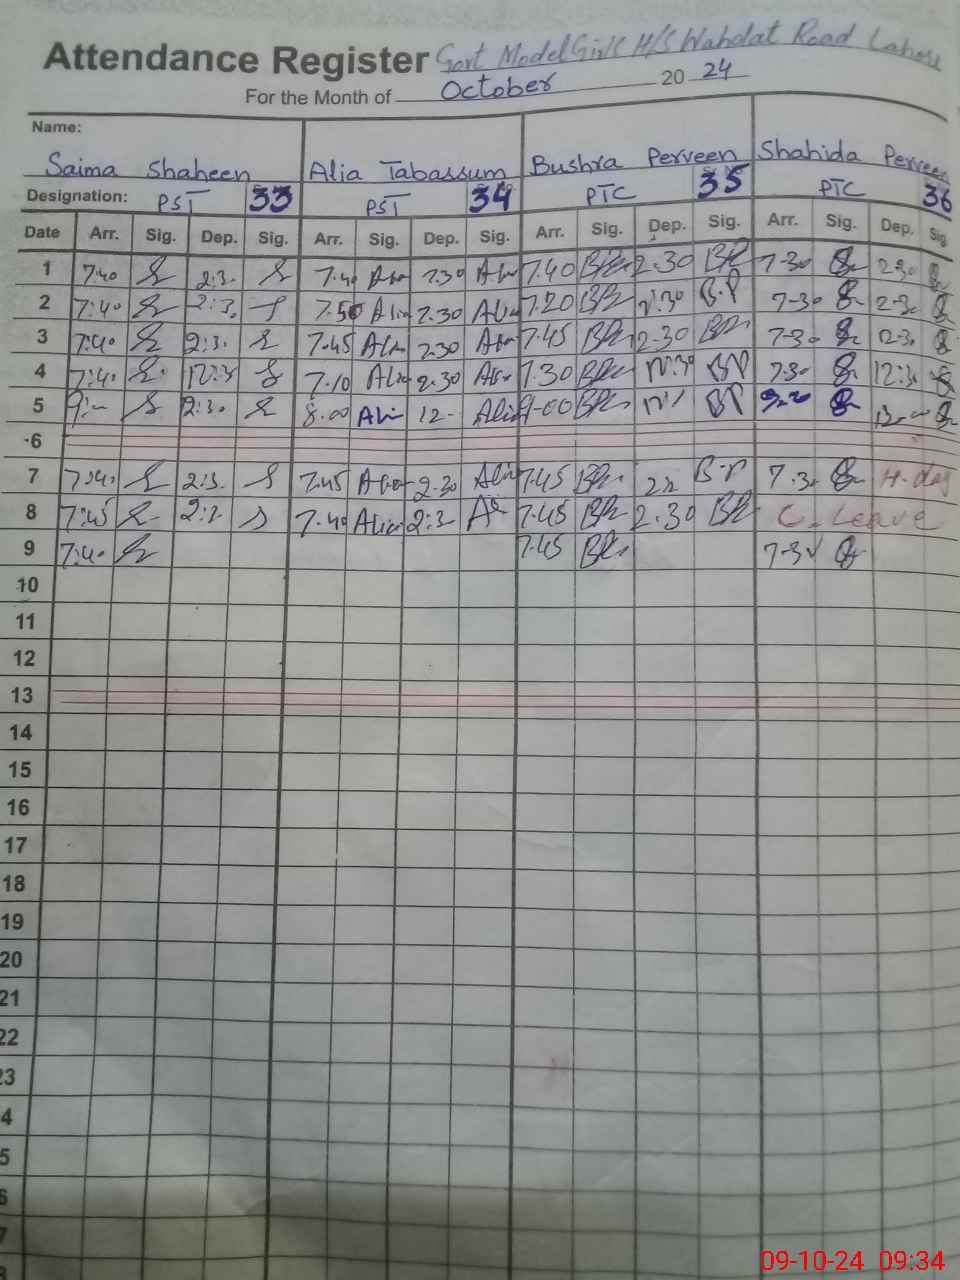 Attendance Register Govt Model Girls H/S Wahdat Road Lahore
For the Month of October 20 24
Name:
Saima Shaheen Alia Tabassum Bushra Perveen Shahida Perveen
Designation: PST 33 PST 34 PTC 35 PTC 36
Date Arr. Sig. Dep. Sig. Arr. Sig. Dep. Sig. Arr. Sig. Dep. Sig. Arr. Sig. Dep. Sig.
1 7:40 2:3. 7.40 2.30 7.40 2.30 7-30 2-30
2 7:40 2:3. 7.50 Alia 2.30 Alia 7.20 2:30 B.P 7-30 2-30
3 7:40 2:3. 7.45 Alia 2.30 7.45 2.30 7-30 2-30
4 7:40 12:3 7.10 Alia 7.30 12:30 7.30 12:30
5 9:- 2:3. 8.00 Ali 12- Alia 9-00 BP
6
7 7:40. 2:3. 7.45 2.30 Alia 7.45 B.P 7.3. H.day
8 7:45 2:3 7.40 Alia 2:3 7.45 2.30 C. Leave
9 7:40 7.45 7-3
10
11
12
13
14
15
16
17
18
19
20
21
22
23
4
5
6
7
8
09-10-24 09:34